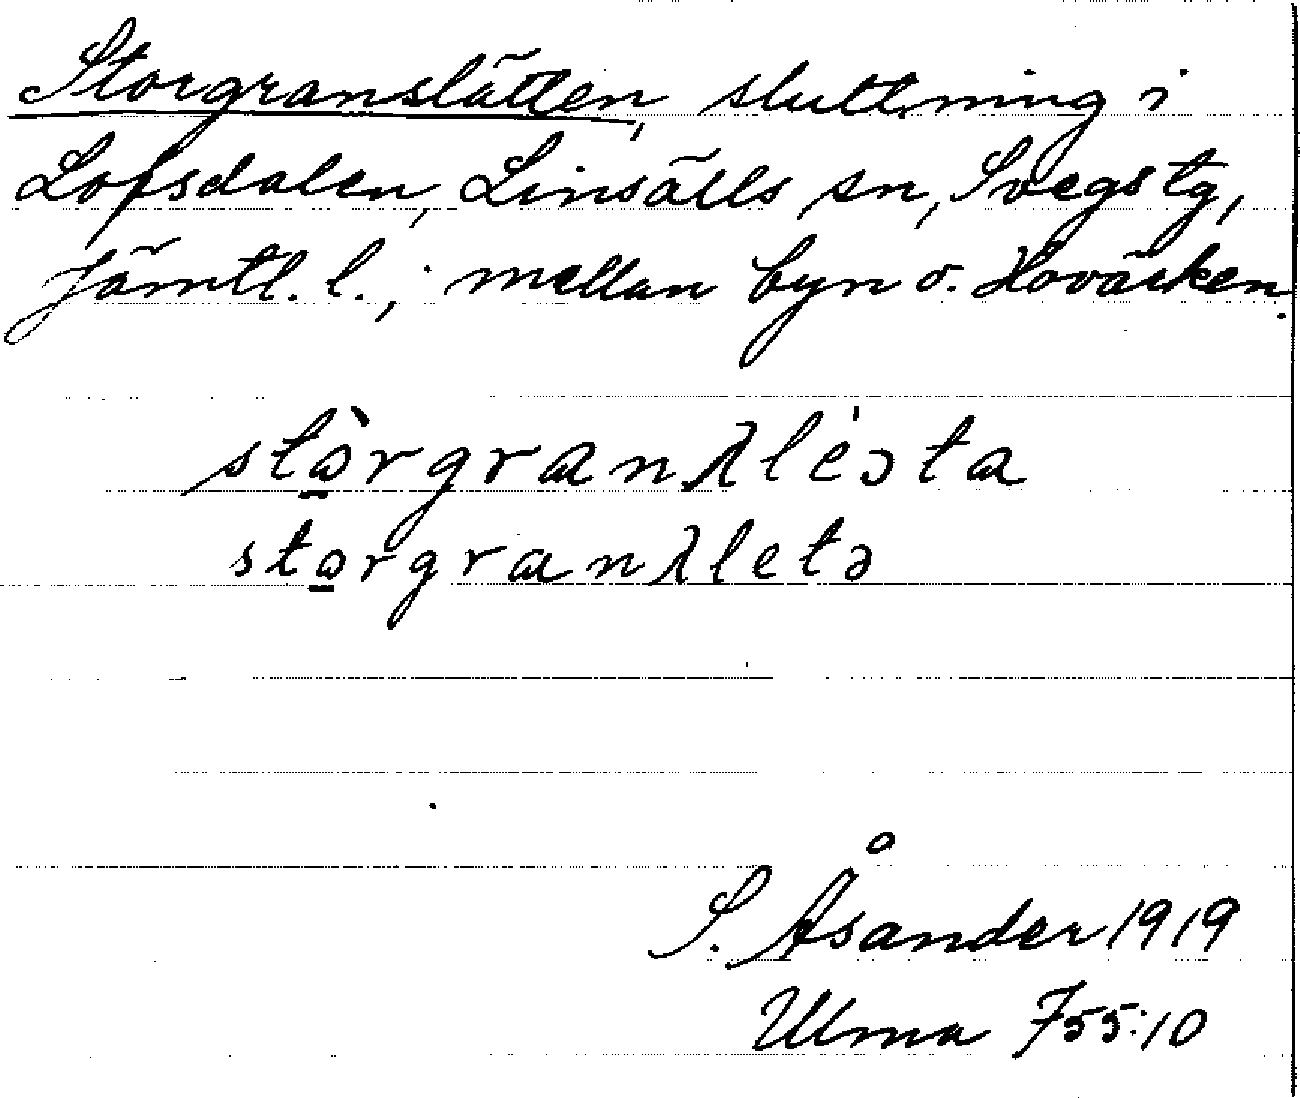 Storgranslätten, sluttning i
Lofsdalen, Linsälls sn, Svegs tg,
Jämtl. l.; mellan byn o. Hovärken.
stòrgranʎléɔta
storgranʎletə
S. Åsander 1919
Ulma 755:10